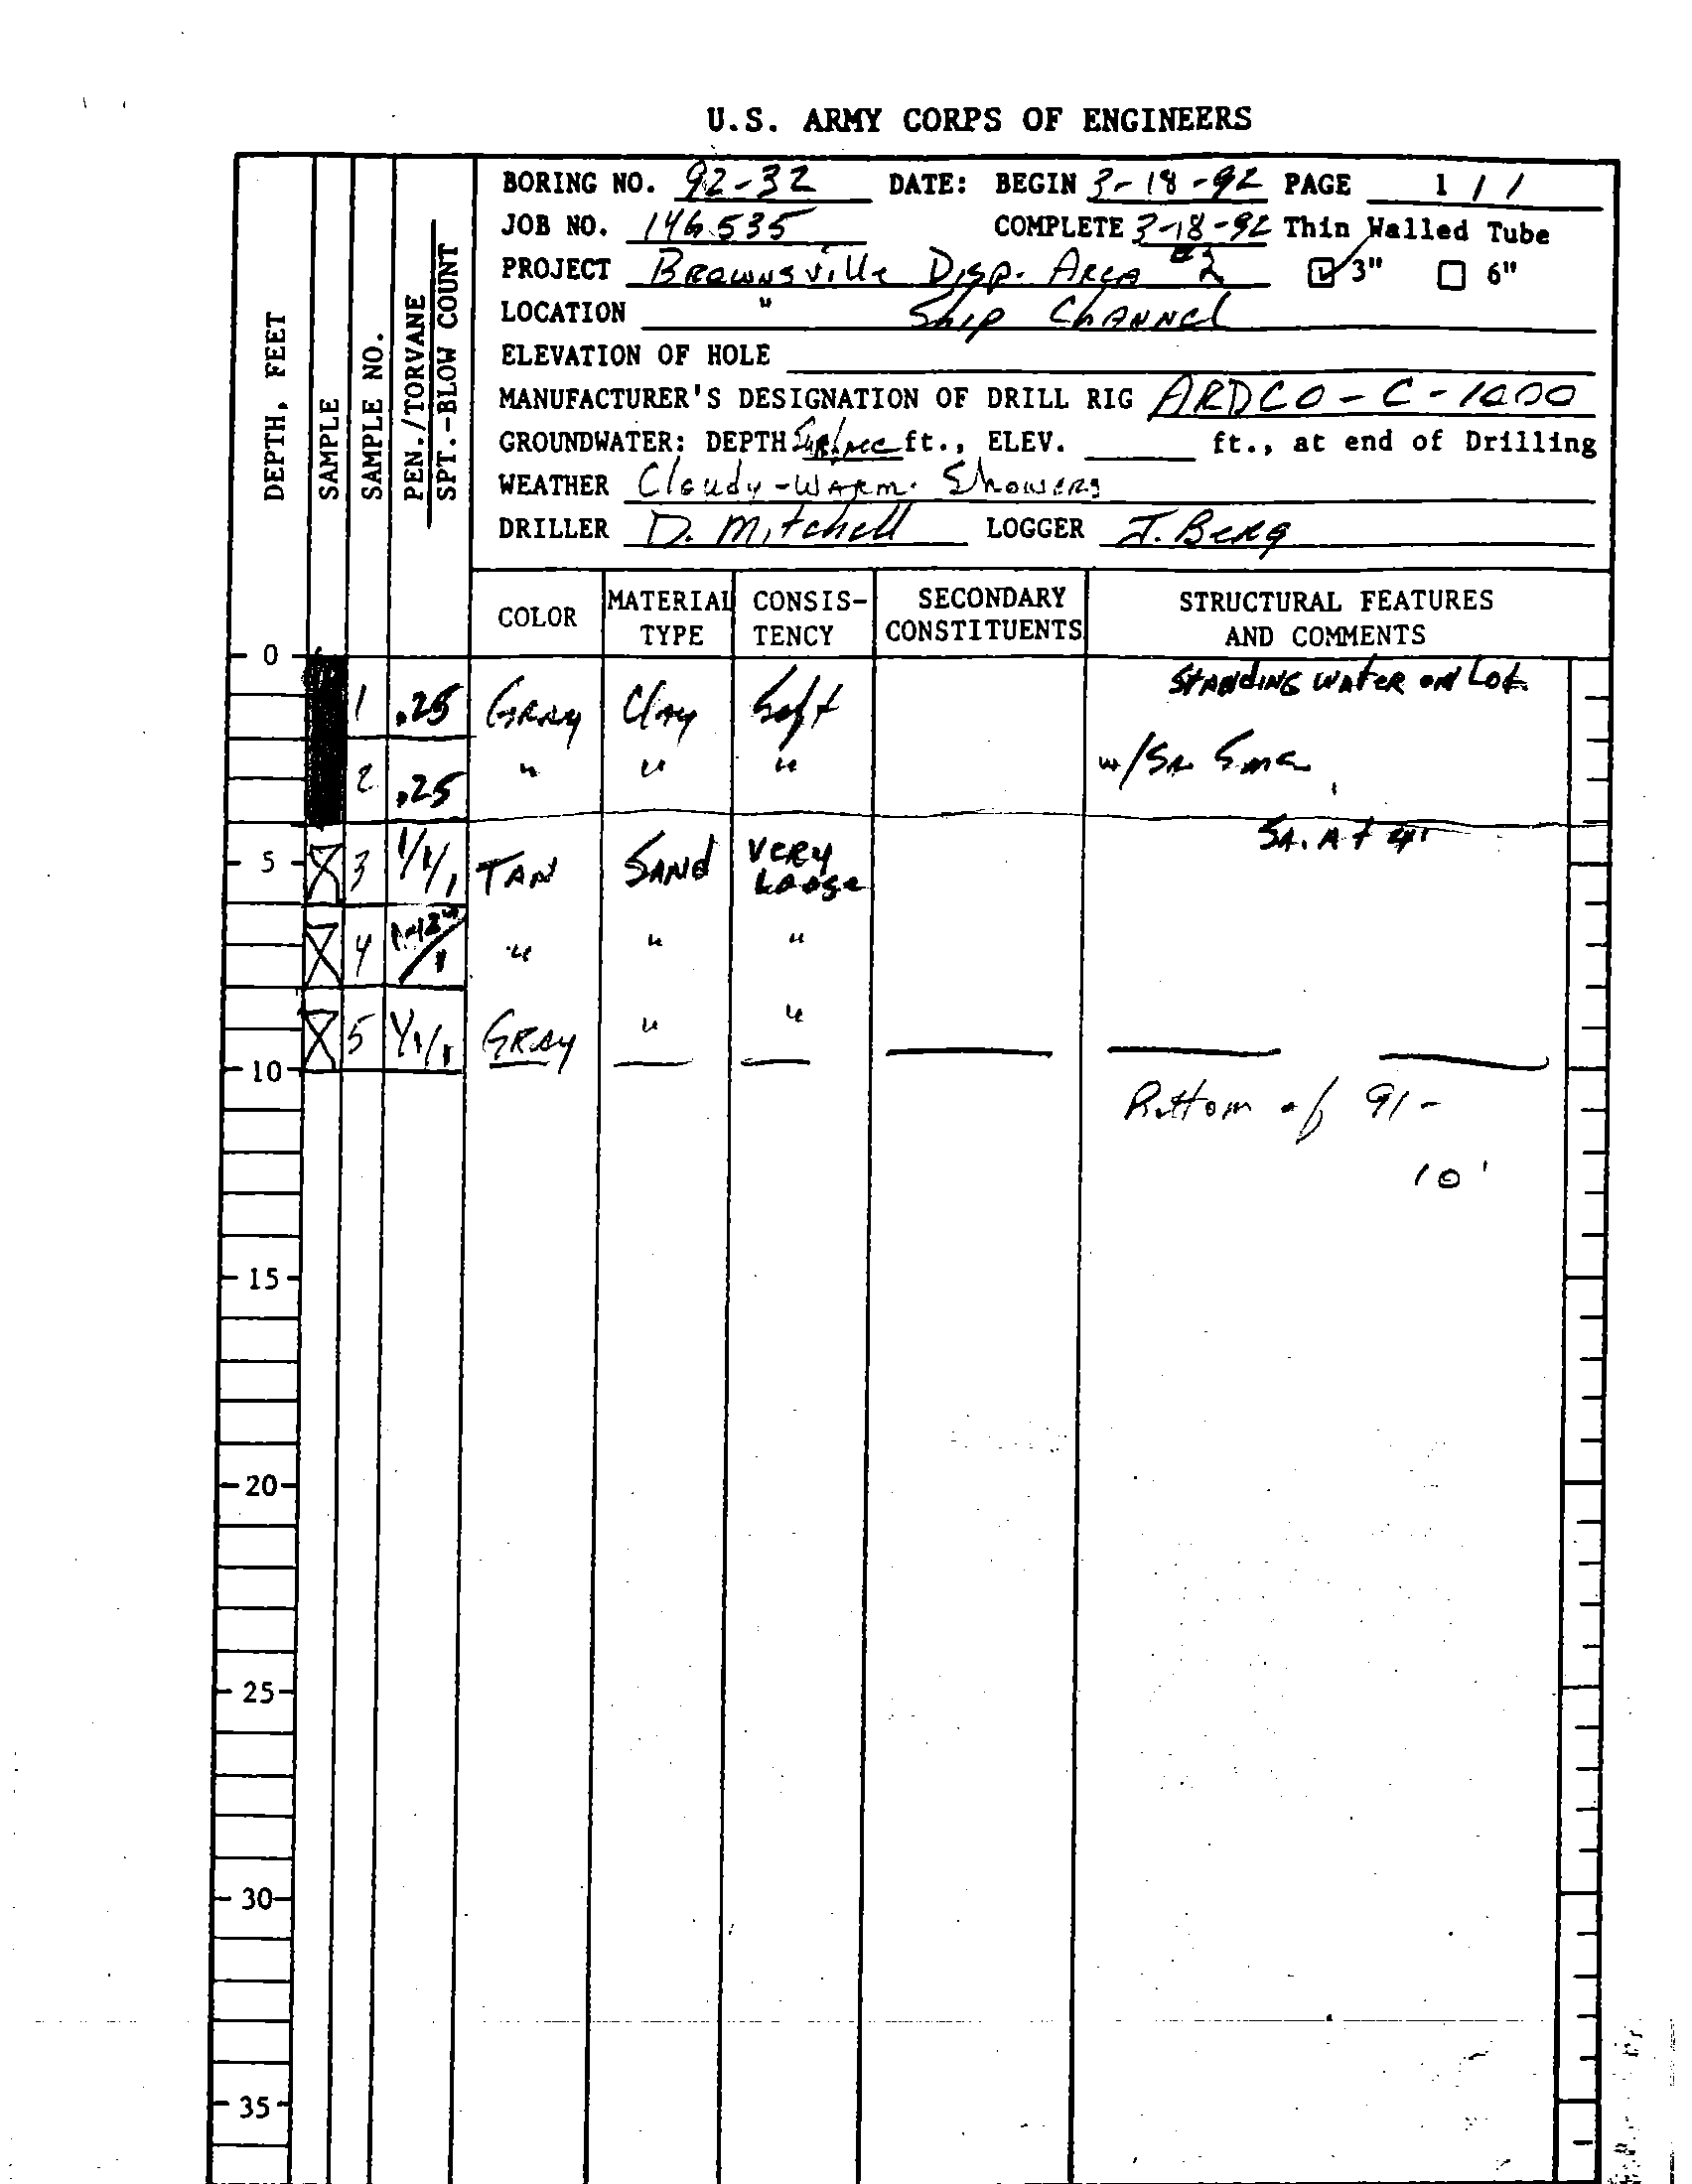 U.S. ARMY CORPS OF ENGINEERS
DEPTH, FEET
SAMPLE
SAMPLE NO.
PEN./TORVANE
SPT.-BLOW COUNT
BORING NO. 92-32 DATE: BEGIN 3-18-92 PAGE 1 / 1
JOB NO. 146535 COMPLETE 3-18-92 Thin Walled Tube
PROJECT Brownsville Disp. Area #2 3" 6"
LOCATION " Ship Channel
ELEVATION OF HOLE
MANUFACTURER'S DESIGNATION OF DRILL RIG ARDCO-C-1000
GROUNDWATER: DEPTH Surface ft., ELEV. ft., at end of Drilling
WEATHER Cloudy-Warm. Showers
DRILLER D. Mitchell LOGGER J. Berg
COLOR MATERIAL TYPE CONSIS-TENCY SECONDARY CONSTITUENTS STRUCTURAL FEATURES AND COMMENTS
0
Standing water on Loc.
1 .25 Gray Clay Soft
2 .25 " " " w/Sa
Sa. At 4'
5 3 1/1/1 Tan Sand Very Loose
4 1-12"/1 " " "
5 1/1/1 Gray " "
10
Bottom of 91-
10'
15
20
25
30
35